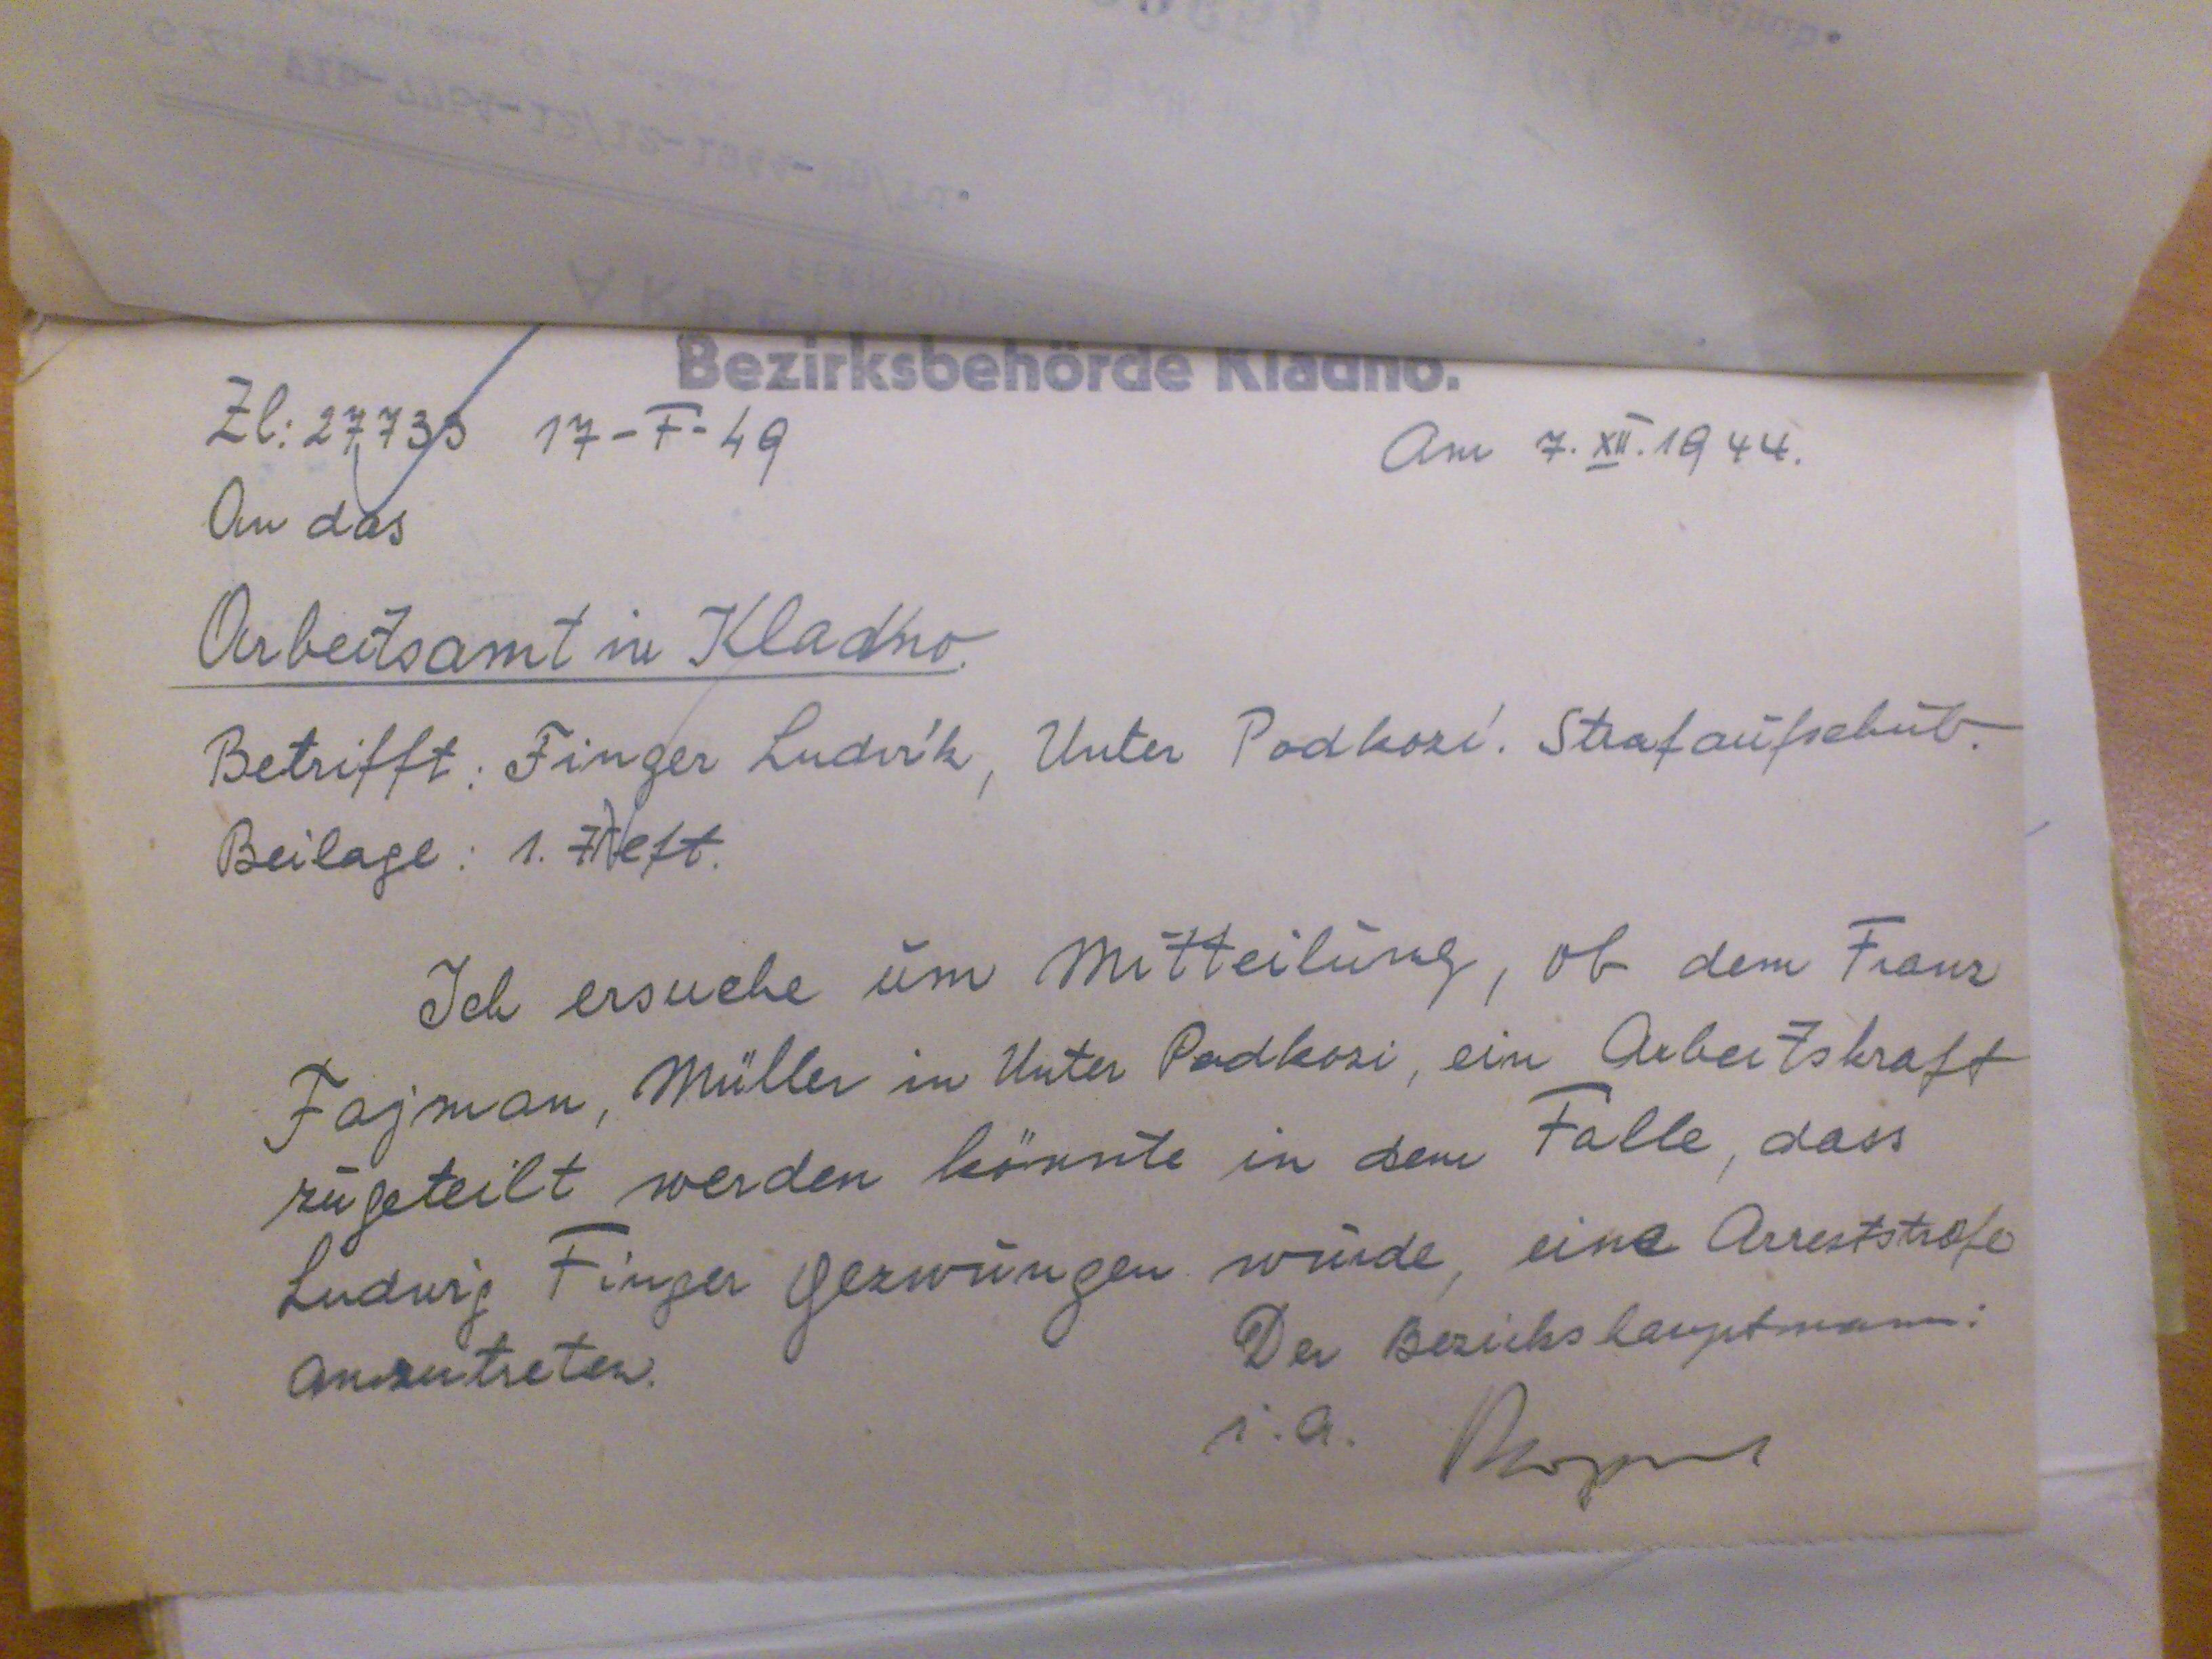 Bezirksbehörde Kladno.
Zl: 27735 17-F-49 Am 7. XII. 1944.
An das
Arbeitsamt in Kladno.
Betrifft: Finger Ludvík, Unter Podkozí. Strafaufschub.
Beilage: 1. Heft.
Ich ersuche um Mitteilung, ob dem Franz
Fajman, Müller in Unter Podkozi, ein Arbeitskraft
zugeteilt werden könnte in dem Falle, dass
Ludwig Finger gezwungen würde, eine Arreststrafe
anzutreten. Der Bezirkshauptmann:
i.A.